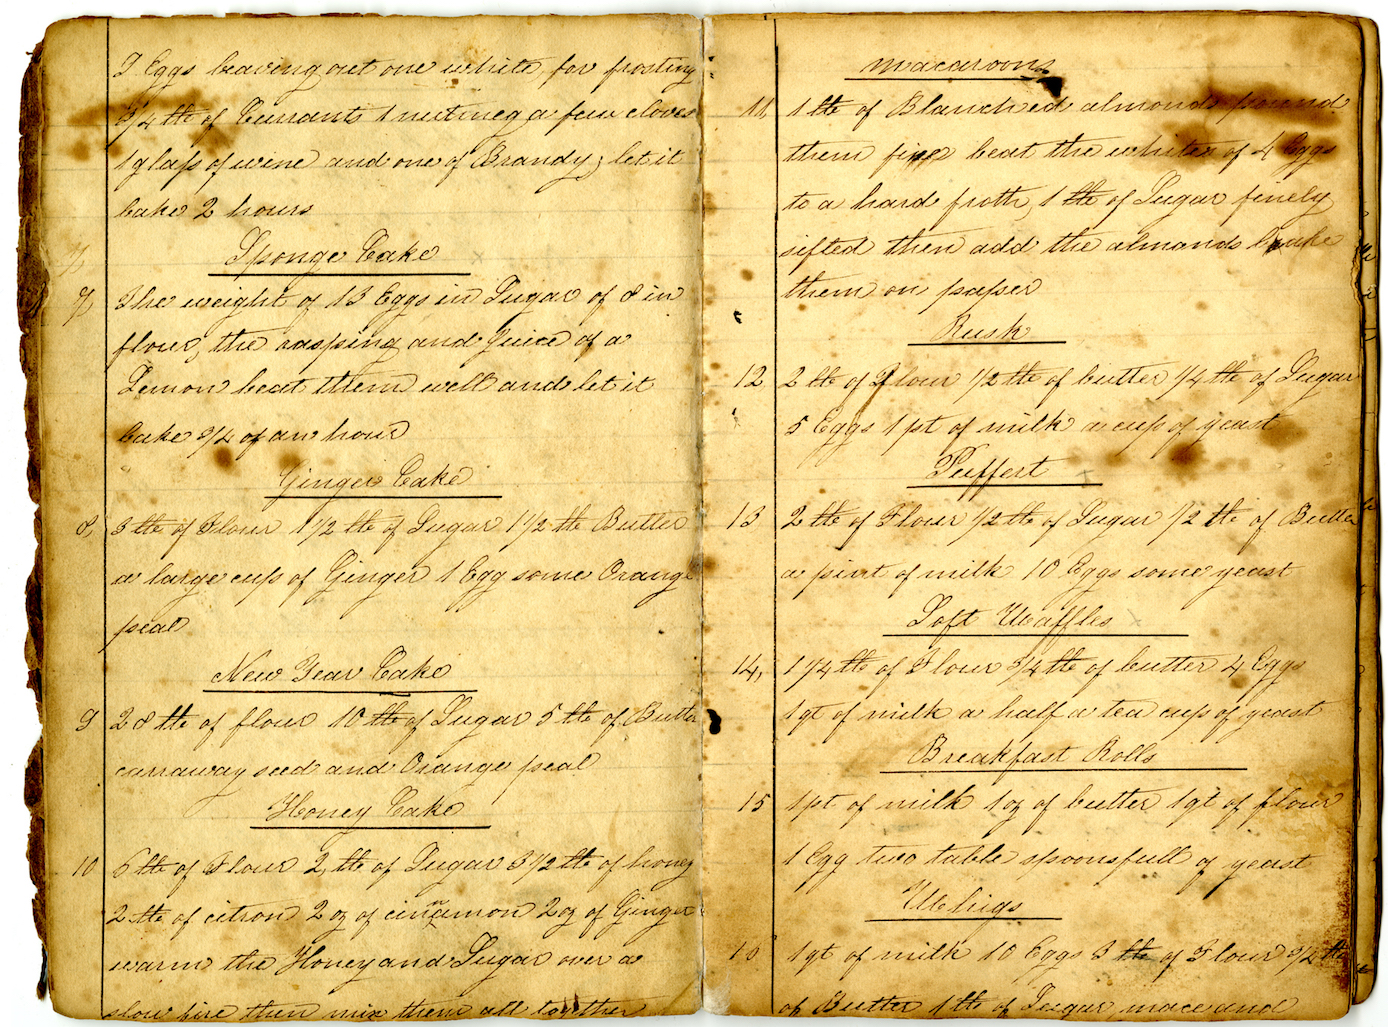 7 Eggs leaving out one white, for frosting
3/4 lb of Currants 1 nutmeg a few cloves
1 glass of wine and one of Brandy, let it
bake 2 hours
Sponge Cake
7, The weight of 13 Eggs in Sugar of 8 in
flour, the rasping and Juice of a
Lemon beat them well and let it
bake 3/4 of an hour
Ginger Cake
8, 3 lb of Flour 1 1/2 lb of Sugar 1 1/2 lb Butter
a large cup of Ginger 1 Egg some Orange
peal
New Year Cake
9 28 lb of flour 10 lb of Sugar 5 lb of Butter
carraway seed and Orange peal
Honey Cake
10 6 lb of Flour 2 lb of Sugar 3 1/2 lb of honey
2 lb of citron 2 oz of cinnamon 2 oz of Ginger
warm the Honey and Sugar over a
slow fire then mix them all together
macaroons
11, 1 lb of Blanched almonds pound
them fine beat the whites of 4 Eggs
to a hard froth, 1 lb of Sugar finely
sifted then add the almonds bake
them on paper
Rusk
12 2 lb of Flour 1/2 lb of butter 1/4 lb of Sugar
5 Eggs 1 pt of milk a cup of yeast
Puffert
13 2 lb of Flour 1/2 lb of Sugar 1/2 lb of Butter
a pint of milk 10 Eggs some yeast
Soft Waffles
14, 1 3/4 lb of Flour 3/4 lb of butter 4 Eggs
1 qt of milk a half a tea cup of yeast
Breakfast Rolls
15 1 pt of milk 1 oz of butter 1 qt of flour
1 Egg two table spoonsfull of yeast
Whigs
16 1 qt of milk 10 Eggs 3 lb of Flour 3/4 lb
of Butter 1 lb of Sugar, mace and